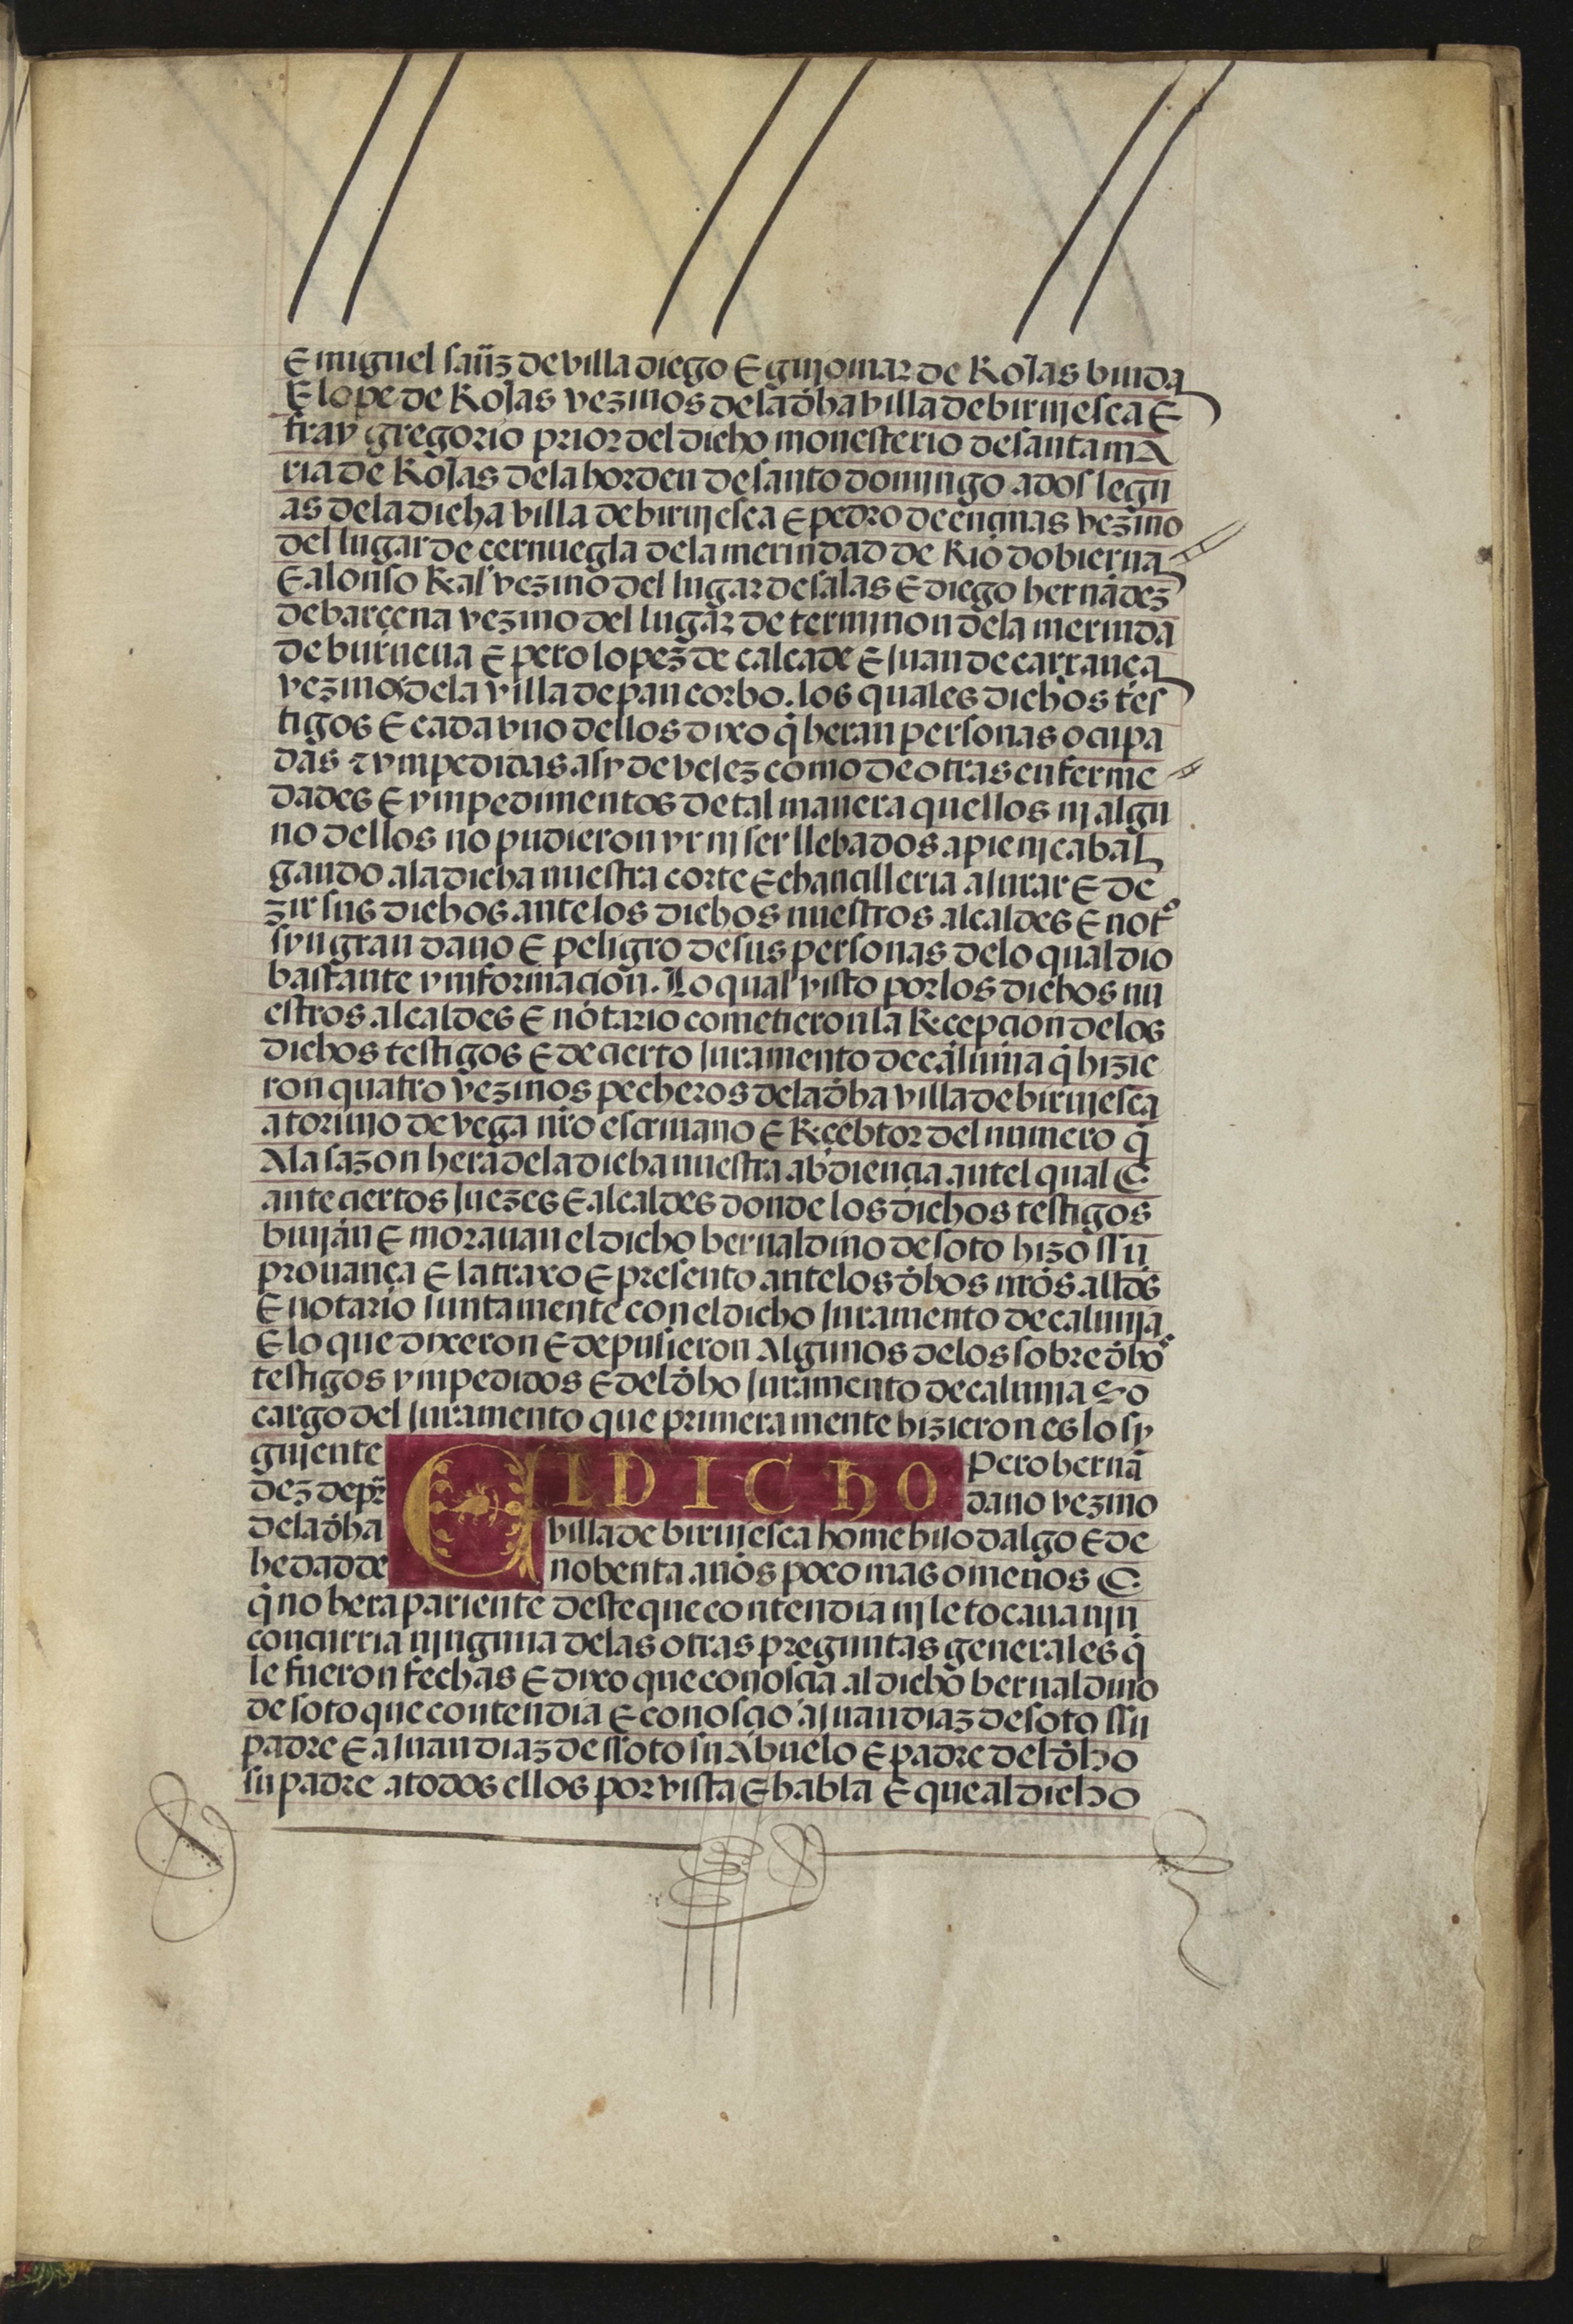 E miguel sañz de villa diego E gujomar de Rojas biuda
E lope de Rojas vezinos de la dha villa de birujesca E
fray gregorio prior del dicho monesterio de santa ma
ria de Rojas de la horden de santo domingo a dos legu
as de la dicha villa de birujesca E pedro de encinas vezino
del lugar de cernuegla de la merindad de Rio dobierna
E alonso Ras vezino del lugar de salas E diego hernãdez
de barcena vezino del lugar de terminon de la merinda
de burueua E pero lopez de calcade E juan de carrança
vezinos de la villa de pancorbo. los quales dichos tes
tigos E cada vno dellos dixo q̃ heran personas ocupa
das z ympedidas asy de vejez como de otras enferme
dades E ympedimentos de tal manera quellos nj algu
no dellos no pudieron yr nj ser llebados a pie nj cabal
gando a la dicha nuestra corte E chancilleria a jurar E de
zir sus dichos ante los dichos nuestros alcaldes E notº
syn gran dano E peligro de sus personas de lo qual dio
bastante ynformacion. Lo qual visto por los dichos nu
estros alcaldes E notario cometieron la Recepcion de los
dichos testigos E de cierto juramento de calunia q̃ hizie
ron quatro vezinos pecheros de la dha villa de birujesca
a toriuio de vega nr̃o escriuano E Recebtor del numero q̃
A la sazon hera de la dicha nuestra abdiencia antel qual E
ante ciertos juezes E alcaldes donde los dichos testigos
biujan E morauan el dicho bernaldino de soto hizo ssu
prouança E la traxo E presento ante los dhos nr̃os alldes
E notario juntamente con el dicho juramento de calunja
E lo que dixeron E depusieron Algunos de los sobre dhos
testigos ympedidos E del dho juramento de calunia so
cargo del juramento que primera mente hizieron es lo sy
gujente El DICHO Pero hernã
dez de pr̃dano vezino
de la dha villa de birujesca home hijo dalgo E de
hedad de nobenta anos poco mas o menos E
q̃ no hera pariente deste que contendia nj le tocaua njn
concurria njnguna de las otras preguntas generales q̃
le fueron fechas E dixo que conoscia al dicho bernaldino
de soto que contendia E conoscio a juan diaz de soto ssu
padre E a juan diaz de ssoto su Abuelo E padre del dho
su padre a todos ellos por vista E habla E que al dicho